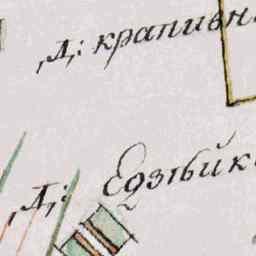 Д: крапивн
Д: Едзѣйк